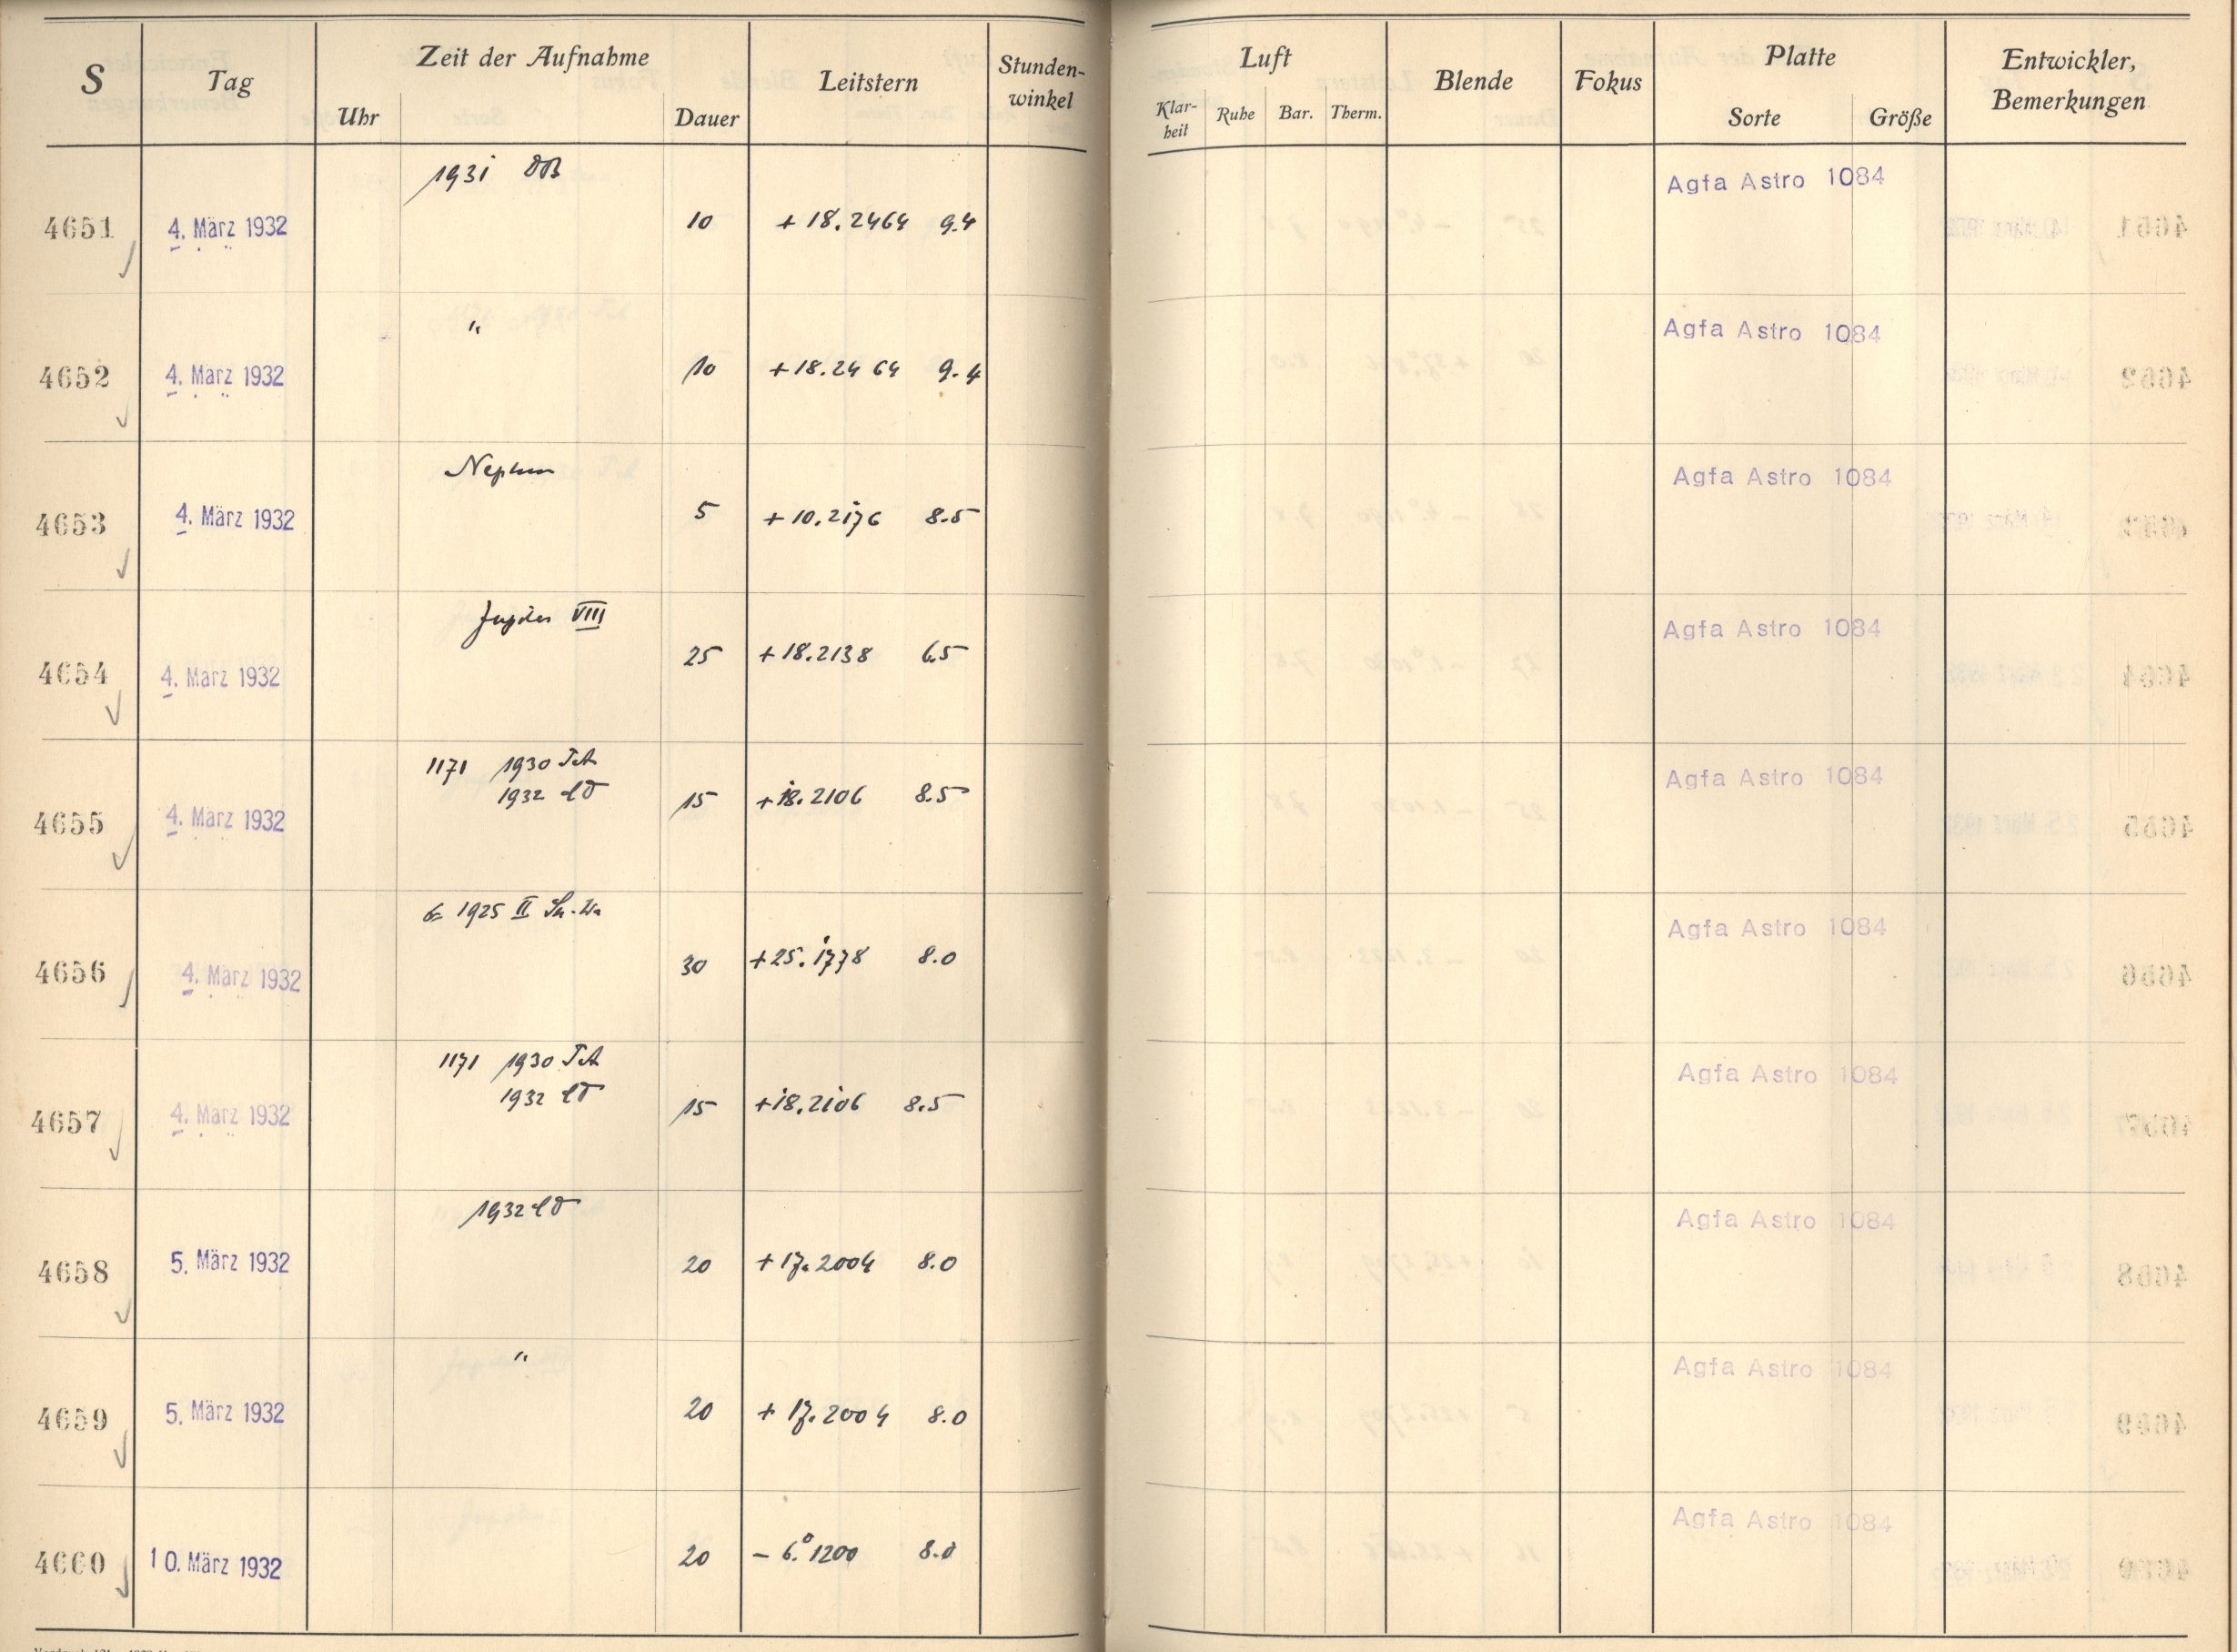 S Tag Zeit der Aufnahme Leitstern Stunden-
winkel Luft Blende Fokus Platte Entwickler,
Bemerkungen
Uhr Dauer Klar-
heit Ruhe Bar. Therm. Sorte Größe
1931 DB Agfa Astro 1084
4651 4. März 1932 10 +18.2464 9.4
" Agfa Astro 1084
4652 4. März 1932 10 +18.2464 9.4
Neptun Agfa Astro 1084
4653 4. März 1932 5 +10.2176 8.5
Jupiter VIII Agfa Astro 1084
4654 4. März 1932 25 +18.2138 6.5
1171 1930 TA Agfa Astro 1084
1932
4655 4. März 1932 15 +18.2106 8.5
1925 II Agfa Astro 1084
4656 4. März 1932 30 +25.1778 8.0
1171 1930 TA Agfa Astro 1084
1932
4657 4. März 1932 15 +18.2106 8.5
1932 Agfa Astro 1084
4658 5. März 1932 20 +17.2004 8.0
" Agfa Astro 1084
4659 5. März 1932 20 +17.2004 8.0
Agfa Astro 1084
4660 10. März 1932 20 -6°.1200 8.0